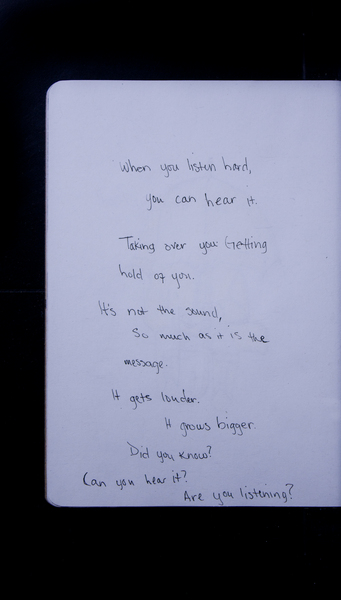 When you listen hard,
you can hear it.
Taking over you. Getting
hold of you.
It's not the sound,
So much as it is the
message.
It gets louder.
It grows bigger.
Did you know?
Can you hear it?
Are you listening?